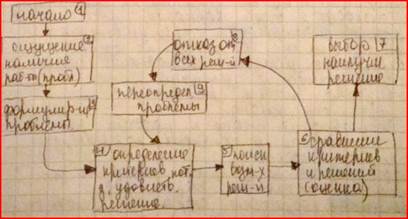 начало 1
ощущение 2
наличие
раб-ты(пробл)
формулир-ие 3
проблемы
4 определение
критериев, кот.
д. удовлетв.
решение
5 поиск
возм-х
реш-й
6 сравнение
критериев
и решений
(оценка)
выбор 7
наилучш
решение
отказ от 8
всех реш-й
переопредел 9
проблемы